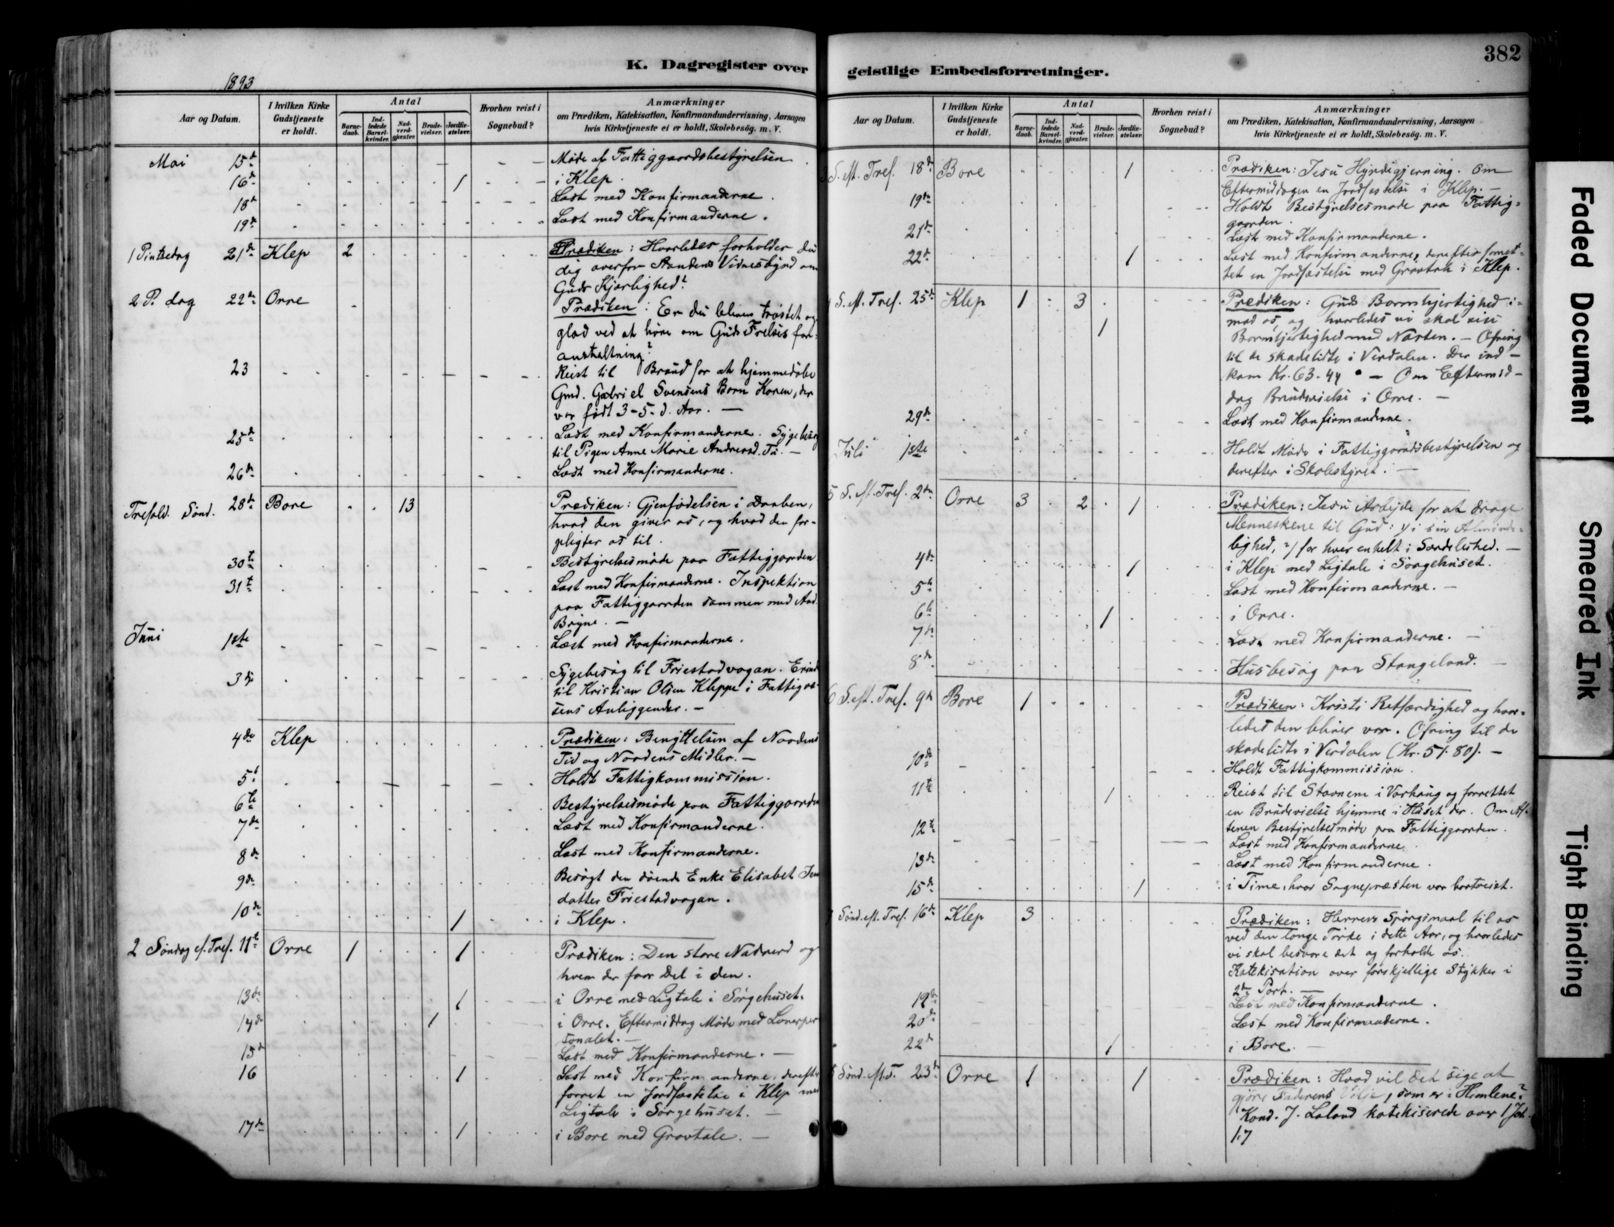 1893
K. Dagregister over
Aar og Datum.
I hvilken Kirke Gudstjeneste er holdt.
Antal
Barnedaab.
Indledede Barselkvinder.
Nadverdgjæster.
Brudevielser.
Jordfæstelser.
Hvorhen reist i Sognebud?
Anmærkninger
om Prædiken, Katekisation, Konfirmandundervisning, Aarsagen
hvis Kirketjeneste ei er holdt, Skolebesøg. m. V.
Mai 15de Møde af Fattiggaardsbestyrelsen
16de 1 i Klep.
18de Læst med Konfirmanderne.
19de Læst med Konfirmanderne.
1 Pintsedag 21de Klep 2 Prædiken: Hvorledes forholder du
dig overfor Aandens Vidnesbyrd om
Guds Kjærlighed?
2 P. dag 22de Orre Prædiken: Er du bleven trøstet og
glad ved at høre om Guds Frelses for-
anstaltning?
23 Reist til Braud for at hjemmedøbe
Gmd. Gabriel Svensens Barn Karen, der
var født 3-5-d. Aar. —
25de Læst med Konfirmanderne. Sygebesøg
til Pigen Anne Marie Andersd. Tu. —
26de Læst med Konfirmanderne.
Trefold. Sønd. 28de Bore 13 Prædiken: Gjenfødelsen i Daaben,
hvad den giver os, og hvad den for-
pligter os til.
30te Bestyrelsesmøde paa Fattiggaarden
31te Læst med Konfirmanderne. Inspektion
paa Fattiggaarden sammen med Aad.
Bryne. —
Juni 1ste Læst med Konfirmanderne.
3die Sygebesøg til Friestadvogan.
til Kristian Olsen Kleppe i Fattigvæ-
sens Anliggender. —
4de Klep Prædiken: Benyttelsen af Naadens
Tid og Naadens Midler. —
5te Holdt Fattigkommission.
6te Bestyrelsesmøde paa Fattiggaarden
7de Læst med Konfirmanderne.
8de Læst med Konfirmanderne.
9de Besøgt den døende Enke Elisabet
datter Friestadvogan.
10de 1 i Klep.
2 Søndag ef. Tref. 11te Orre 1 1 Prædiken: Den store Nadverd og
hvem der faar Del i den.
13de 1 i Orre med Ligtale i Sørgehuset.
14de 1 i Orre. Eftermiddag Møde med Lærerper
sonalet. —
15de Læst med Konfirmanderne. —
16 1 Læst med Konfirmanderne, derefter
forret en Jordfæstelse i Klep med
Ligtale i Sørgehuset. —
17de 1 i Bore med Gravtale. —
geistlige Embedsforretninger.
382
Aar og Datum.
I hvilken Kirke Gudstjeneste er holdt.
Antal
Barnedaab.
Indledede Barselkvinder.
Nadverdgjæster.
Brudevielser.
Jordfæstelser.
Hvorhen reist i Sognebud?
Anmærkninger
om Prædiken, Katekisation, Konfirmandundervisning, Aarsagen
hvis Kirketjeneste ei er holdt, Skolebesøg. m. V.
S. ef. Tref. 18de Bore 1 Prædiken: Jesu Hyrdegjerning. Om
Eftermiddagen en Jordfæstelse i Klep. —
19de Holdt Bestyrelsesmøde paa Fattig-
gaarden.
21de Læst med Konfirmanderne.
22de 1 Læst med Konfirmanderne, derefter forret-
tet en Jordfæstelse med Gravtale i Klep.
4 S. ef. Tref. 25de Klep 1 3 Prædiken: Guds Barmhjertighed i-
mod os og hvorledes vi skal vise
1 Barmhjertighed mod Næsten. — Ofring
til de skadelidte i Verdalen. Der ind-
kom Kr. 63.44 — Om Eftermid-
dag Brudevielse i Orre. —
29de Læst med Konfirmanderne.
Juli 1ste Holdt Møde i Fattiggaardsbestyrelsen og
derefter i Skolestyret. —
5 S. ef. Tref. 2den Orre 3 2 1 Prædiken: Jesu Arbejde for at drage
Menneskene til Gud: 1/ i sin Alminde-
lighed, 2/ for hver enkelt i Særdeleshed. —
4de 1 i Klep med Ligtale i Sørgehuset.
5te Læst med Konfirmanderne. —
6te 1 i Orre.
7de Læst med Konfirmanderne. —
8de Husbesøg paa Stangeland. —
6 S. eft. Tref. 9de Bore 1 Prædiken: Kristi Retfærdighed og hvor-
ledes den bliver vor. Ofring til de
skadelidte i Verdalen (Kr. 51.80). —
10de Holdt Fattigkommission.
11te 1 Reist til Stavnem i Varhaug og forrettet
en Brudevielse hjemme i Huset der. Om Af-
tenen Bestyrelsesmøde paa Fattiggaarden.
12te Læst med Konfirmanderne.
13de Læst med Konfirmanderne.
15de 1 i Time, hvor Sognepræsten var bortreist.
Sønd. ef. Tref. 16de Klep 3 Prædiken: Herrens Spørgsmaal til os
ved den lange Tørke i dette Aar, og hvorledes
vi skal besvare det og forholde os.
Katekisation over forskjellige Stykker i
2den Part. —
19de Læst med Konfirmanderne.
20de Læst med Konfirmanderne.
22de 1 i Bore. —
Sønd. ef. T. 23de Orre 1 1 Prædiken: Hvad vil det sige at
gjøre Faderens Vilje, som er i Himlene?
Kand. J. Laland katekiserede over 1 Joh.
1.7
Faded Document
Smeared Ink
Tight Binding